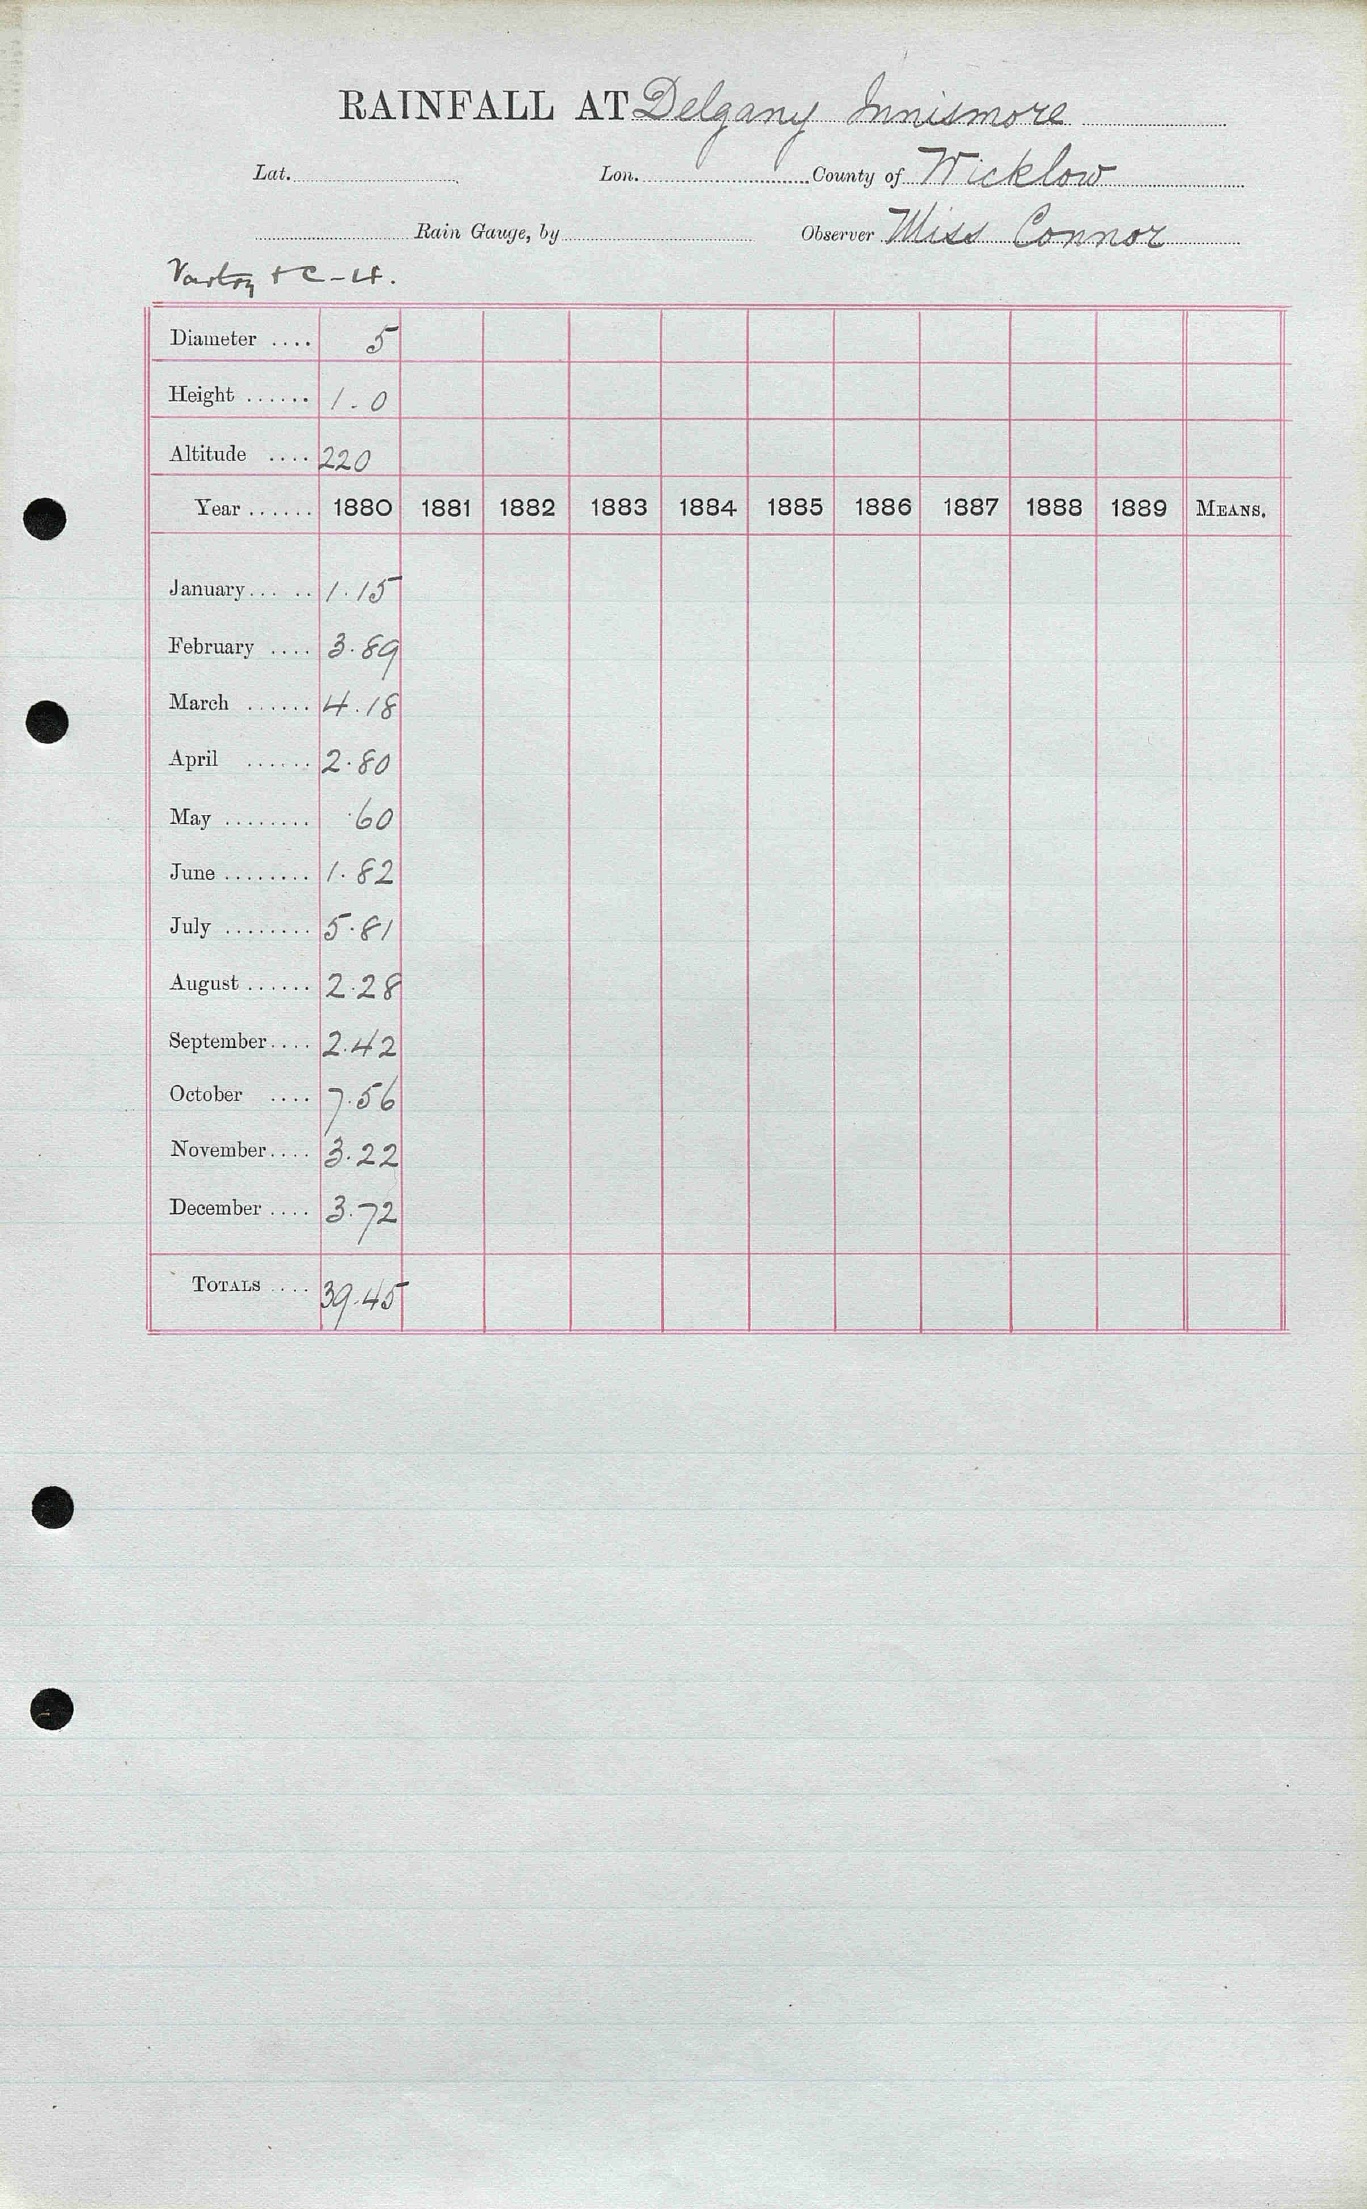 RAINFALL AT Delgany Innismore
Lat. Lon. County of Wicklow
Rain Gauge, by Observer Miss Connor
Vartry + C-4.
Diameter .... 5
Height ...... 1.0
Altitude .... 220
Year ...... 1880 1881 1882 1883 1884 1885 1886 1887 1888 1889 MEANS.
January... .. 1.15
February .... 3.89
March ...... 4.18
April ...... 2.80
May ........ .60
June ........ 1.82
July ........ 5.81
August ...... 2.28
September.... 2.42
October .... 7.56
November.... 3.22
December .... 3.72
TOTALS .... 39.45